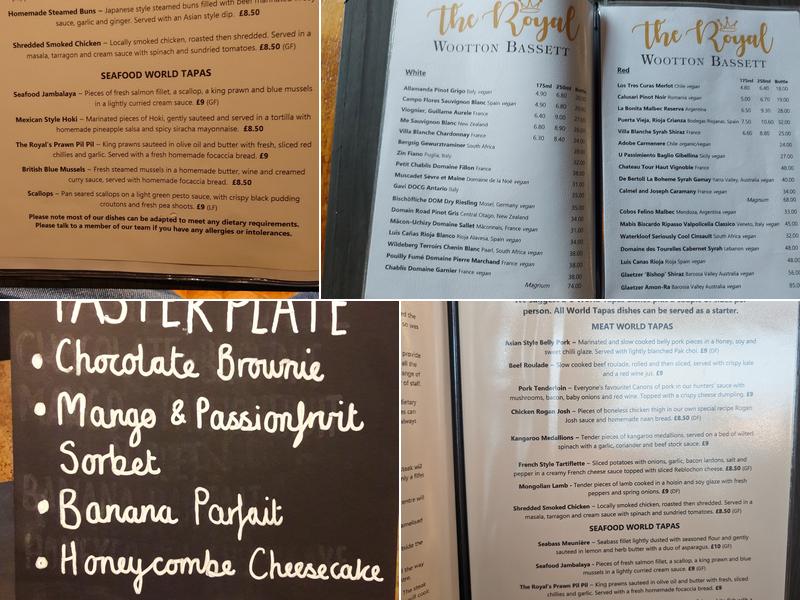 Homemade Steamed Buns – Japanese style steamed buns filled with beef marinated in
sauce, garlic and ginger. Served with an Asian style dip. £8.50
Shredded Smoked Chicken – Locally smoked chicken, roasted then shredded. Served in a
masala, tarragon and cream sauce with spinach and sundried tomatoes. £8.50 (GF)
SEAFOOD WORLD TAPAS
Seafood Jambalaya - Pieces of fresh salmon fillet, a scallop, a king prawn and blue mussels
in a lightly curried cream sauce. £9 (GF)
Mexican Style Hoki – Marinated pieces of Hoki, gently sauteed and served in a tortilla with
homemade pineapple salsa and spicy siracha mayonnaise. £8.50
The Royal's Prawn Pil Pil – King prawns sauteed in olive oil and butter with fresh, sliced red
chillies and garlic. Served with a fresh homemade focaccia bread. £9
British Blue Mussels – Fresh steamed mussels in a homemade butter, wine and creamed
curry sauce, served with homemade focaccia bread. £8.50
Scallops – Pan seared scallops on a light green pesto sauce, with crispy black pudding
croutons and fresh pea shoots. £9 (LF)
Please note most of our dishes can be adapted to meet any dietary requirements.
Please talk to a member of our team if you have any allergies or intolerances.
the Royal
WOOTTON BASSETT
White
175ml 250ml Bottle
Allamanda Pinot Grigo Italy vegan 4.90 6.80
Campo Flores Sauvignon Blanc Spain vegan 4.90 6.80
Viognier, Guillaume Aurele France 6.40 9.00
Me Sauvignon Blanc New Zealand 6.80 8.90
Villa Blanche Chardonnay France 6.30 8.40
Bergsig Gewurztraminer South Africa
Zin Fiano Puglia, Italy
Petit Chablis Domaine Fillon France 38.00
Muscadet Sèvre et Maine Domaine de la Noë vegan
Gavi DOCG Antario Italy
Bischöfliche DOM Dry Riesling Mosel, Germany vegan 35.00
Domain Road Pinot Gris Central Otago, New Zealand 34.00
Mâcon-Uchizy Domaine Sallet Mâconnais, France vegan 31.00
Luis Cañas Rioja Blanco Rioja Alavesa, Spain vegan 34.00
Wildeberg Terroirs Chenin Blanc Paarl, South Africa vegan 34.00
Pouilly Fumé Domaine Pierre Marchand France vegan 38.00
Chablis Domaine Garnier France vegan 38.00
Magnum 74.00
the Royal
WOOTTON BASSETT
Red
175ml 250ml Bottle
Los Tres Curas Merlot Chile vegan 4.80 6.40 18.00
Calusari Pinot Noir Romania vegan 5.00 6.70 19.00
La Bonita Malbec Reserva Argentina 6.50 9.30 28.00
Puerta Vieja, Rioja Crianza Bodegas Riojanas, Spain 7.50 10.60 32.00
Villa Blanche Syrah Shiraz France 6.60 8.80 25.00
Adobe Carmenere Chile organic/vegan 24.00
U Passimiento Baglio Gibellina Sicily vegan 27.00
Chateau Tour Haut Vignoble France 48.00
De Bertoli La Boheme Syrah Gamay Yarra Valley, Australia vegan 40.00
Calmel and Joseph Caramany France vegan 34.00
Magnum 68.00
Cobos Felino Malbec Mendoza, Argentina vegan 33.00
Mabis Biscardo Ripasso Valpolicella Classico Veneto, Italy vegan 45.00
Waterkloof Seriously Cool Cinsault South Africa vegan 32.00
Domaine des Tourelles Cabernet Syrah Lebanon vegan 48.00
Luis Canas Rioja Rioja Spain vegan 48.00
Glaetzer 'Bishop' Shiraz Barossa Valley Australia vegan 56.00
Glaetzer Amon-Ra Barossa Valley Australia vegan 85.00
TASTER PLATE
• Chocolate Brownie
• Mango & Passionfruit
Sorbet
• Banana Parfait
• Honeycombe Cheesecake
person. All World Tapas dishes can be served as a starter.
MEAT WORLD TAPAS
Asian Style Belly Pork – Marinated and slow cooked belly pork pieces in a honey, soy and
sweet chilli glaze. Served with lightly blanched Pak choi. £9 (GF)
Beef Roulade – Slow cooked beef roulade, rolled and then sliced, served with crispy kale
and a red wine jus. £9
Pork Tenderloin – Everyone's favourite! Canons of pork in our hunters' sauce with
mushrooms, bacon, baby onions and red wine. Topped with a crispy cheese dumpling. £9
Chicken Rogan Josh – Pieces of boneless chicken thigh in our own special recipe Rogan
Josh sauce and homemade naan bread. £8.50 (DF)
Kangaroo Medallions – Tender pieces of kangaroo medallions, served on a bed of wilted
spinach with a garlic, coriander and beef stock sauce. £9
French Style Tartiflette – Sliced potatoes with onions, garlic, bacon lardons, salt and
pepper in a creamy French cheese sauce topped with sliced Reblochon cheese. £8.50 (GF)
Mongolian Lamb - Tender pieces of lamb cooked in a hoisin and soy glaze with fresh
peppers and spring onions. £9 (DF)
Shredded Smoked Chicken – Locally smoked chicken, roasted then shredded. Served in a
masala, tarragon and cream sauce with spinach and sundried tomatoes. £8.50 (GF)
SEAFOOD WORLD TAPAS
Seabass Meunière – Seabass fillet lightly dusted with seasoned flour and gently
sauteed in lemon and herb butter with a duo of asparagus. £10 (GF)
Seafood Jambalaya - Pieces of fresh salmon fillet, a scallop, a king prawn and blue
mussels in a lightly curried cream sauce. £9 (GF)
The Royal's Prawn Pil Pil – King prawns sauteed in olive oil and butter with fresh, sliced
red chillies and garlic. Served with a fresh homemade focaccia bread. £9